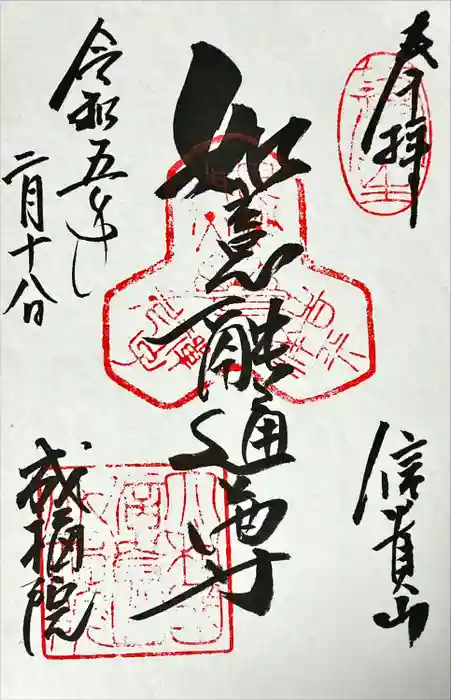 奉拝
信貴山
如意融通尊
令和五年
二月十八日
成福院